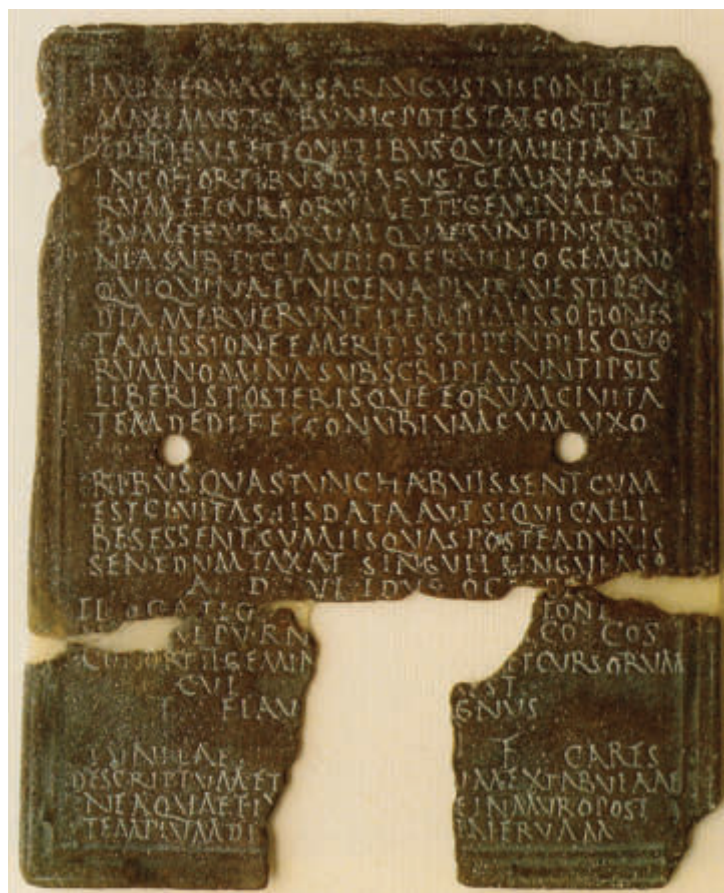 IMP NERVA CAESAR AVGVSTVS PONTIFEX
MAXIMVS TRIBVNIC POTESTATE COS II P P
PEDITIBVS ET EQVITIBVS QVI MILITANT
IN COHORTIBVS DVABVS I GEMINA SARDO
RVM ET CVRSORVM ET II GEMINA LIGV
RVM ET CVRSORVM QVAE SVNT IN SARDI
NIA SVB TI CLAVDIO SERVILIO GEMINO
QVI QVINA ET VICENA PLVRAVE STIPEN
DIA MERVERVNT ITEM DIMISSO HONES
TA MISSIONE EMERITIS STIPENDIIS QVO
RVM NOMINA SVBSCRIPTA SVNT IPSIS
LIBERIS POSTERISQVE EORVM CIVITA
TEM DEDIT ET CONVBIVM CVM VXO
RIBVS QVAS TVNC HABVISSENT CVM
EST CIVITAS IIS DATA AVT SI QVI CAELI
BES ESSENT CVM IIS QVAS POSTEA DVXIS
SENT DVMTAXAT SINGVLI SINGVLAS
A D VI IDVS OC
COS
COHORT II GEMIN ET CVRSORVM
CVI
FLAV GNVS
F CARES
DESCRIPTVM ET EX TABVLA AE
NEA QVAE FIX IN MVRO POST
TEMPLVM DI